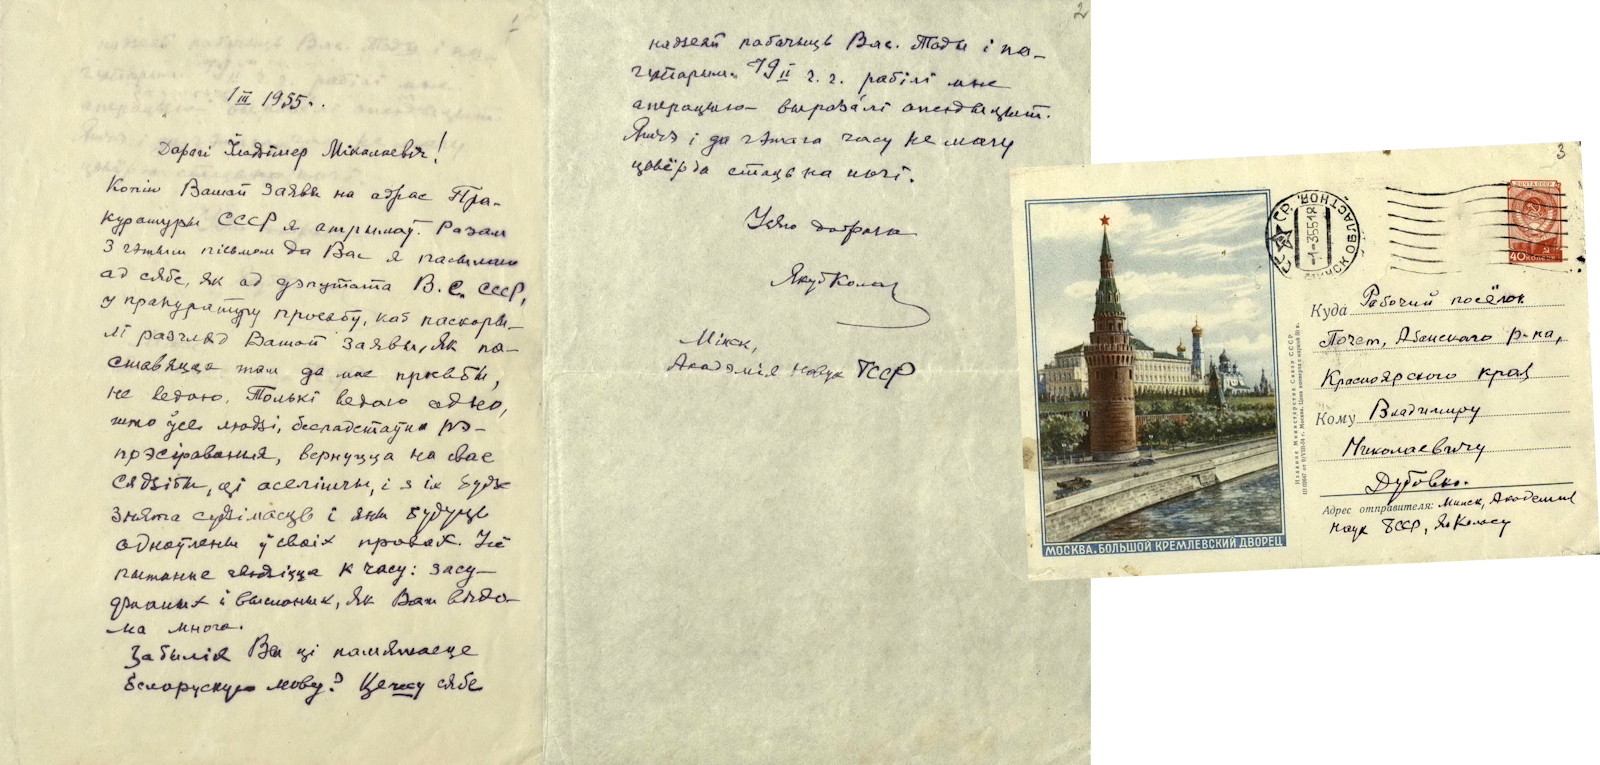 1
1 III 1955 г.
Дарагі Уладзімер Мікалаевіч!
Копію Вашай заявы на адрас Пра-
куратуры СССР я атрымаў. Разам
з гэтым пісьмом да Вас я пасылаю
ад сябе, як ад дэпутата В.С. СССР,
у пракуратуру просьбу, каб паскоры-
лі разгляд Вашай заявы. Як па-
ставяцца там да мае просьбы,
не ведаю. Толькі ведаю адно,
што ўсе людзі, беспадстаўна рэ-
прэсіраваныя, вернуцца на свае
сядзібы, ці аселішчы, і з іх будзе
знята судзімасць і яны будуць
адноўлены ў сваіх правах. Усё
пытанне зводзіцца к часу: засу-
джаных і высланых, як Вам вядо-
ма многа.
Забыліся Вы ці памятаеце
беларускую мову? Цешу сябе
2
надзеяй пабачыць Вас. Тады і па-
гутарым. 19 II г.г. рабілі мне
аперацыю – выразалі апендыцыт.
Яшчэ і да гэтага часу не магу
цвёрда стаць на ногі.
Усяго добрага
Якуб Колас
Мінск,
Акадэмія Навук БССР
3
МОСКВА. БОЛЬШОЙ КРЕМЛЕВСКИЙ ДВОРЕЦ
Издание Министерства Связи СССР
МИНСК ОБЛАСТНОЙ
ПОЧТА СССР
40 КОПЕЕК
Куда Рабочий посёлок
Почет, Абанского р-на,
Красноярского края
Кому Владимиру
Николаевичу
Дубовко.
Адрес отправителя: Минск, Академия
наук БССР, Як. Коласу